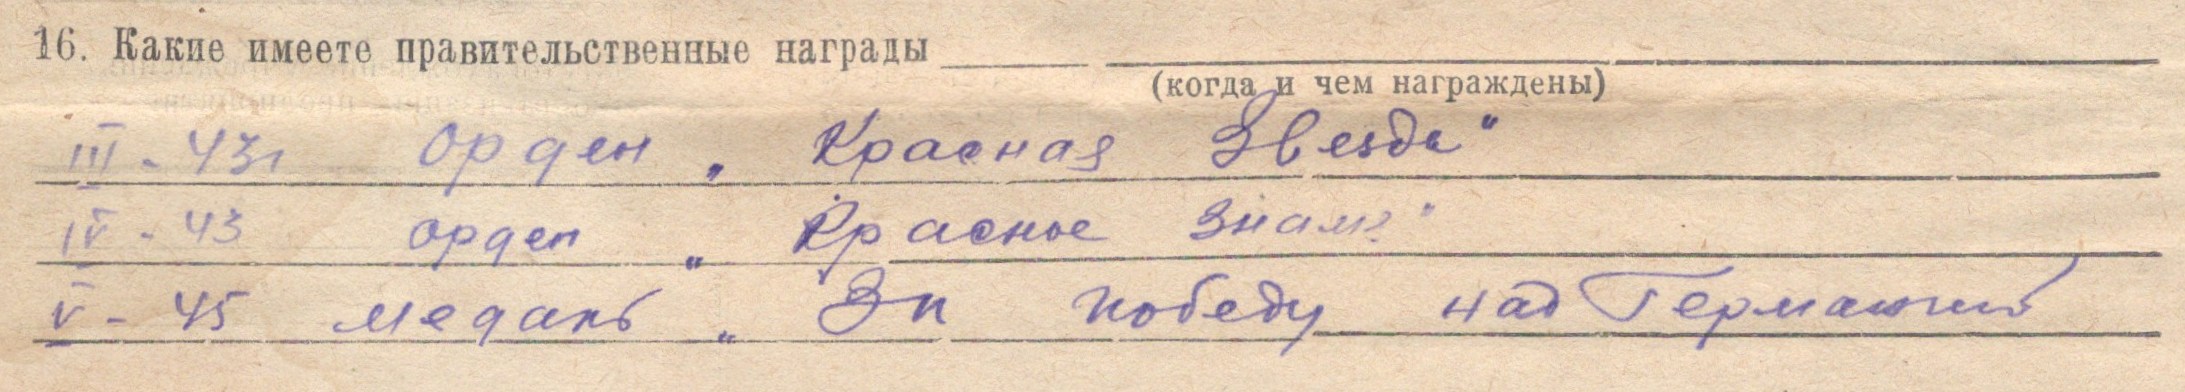 16. Какие имеете правительственные награды
(когда и чем награждены)
III - 43г Орден „Красная Звезда"
IV - 43 орден „Красное Знамя"
V - 45 медаль „За победу над Германией